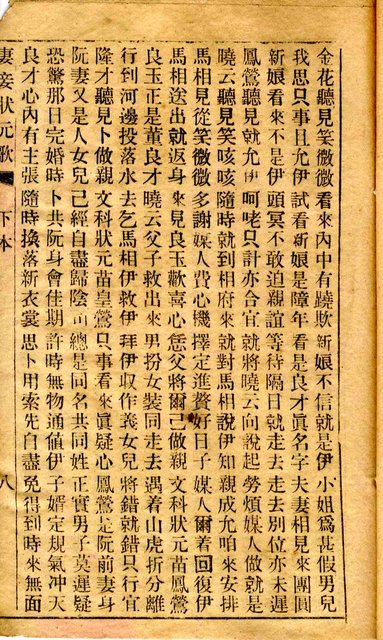 金花聽見笑微微看來內中有蹺欺新娘不信就是伊小姐為甚假男兒
我思只事且允伊試看新娘是障年看是良才眞名字夫妻相見來團圓
新娘看來不是伊頭冥不敢迫親誼等待隔日就走去走去別位亦未遲
鳳鶯聽見就允伊呵咾只計亦合宜就將曉云向說起勞煩媒人做就是
曉云聽見笑咳咳隨時就到相府來就對馬相說伊知親成允咱來安排
馬相見從笑微微多謝媒人費心機擇定進贅好日子媒人爾着回復伊
馬相送出就返身來見良玉歡喜心恁父將爾己做親文科狀元苗鳳鶯
良玉正是董良才曉云父子救出來男扮女裝同走去遇着山虎折分離
行到河邊投落水去乞馬相伊救伊拜伊收作義女兒將錯就錯只行宜
隆才聽見卜做親文科狀元苗皇鶯只事看來眞疑心鳳鶯是阮前妻身
阮妻又是人女兒己經自盡歸陰司總是同名共同姓正實男子莫遲疑
恐驚那日完婚時卜共阮身會佳期許時無物通値伊子婿定規氣冲天
良才心內有主張隨時換落新衣裳思卜用索先自盡免得到時來無面
妻妾狀元歌 下本 八